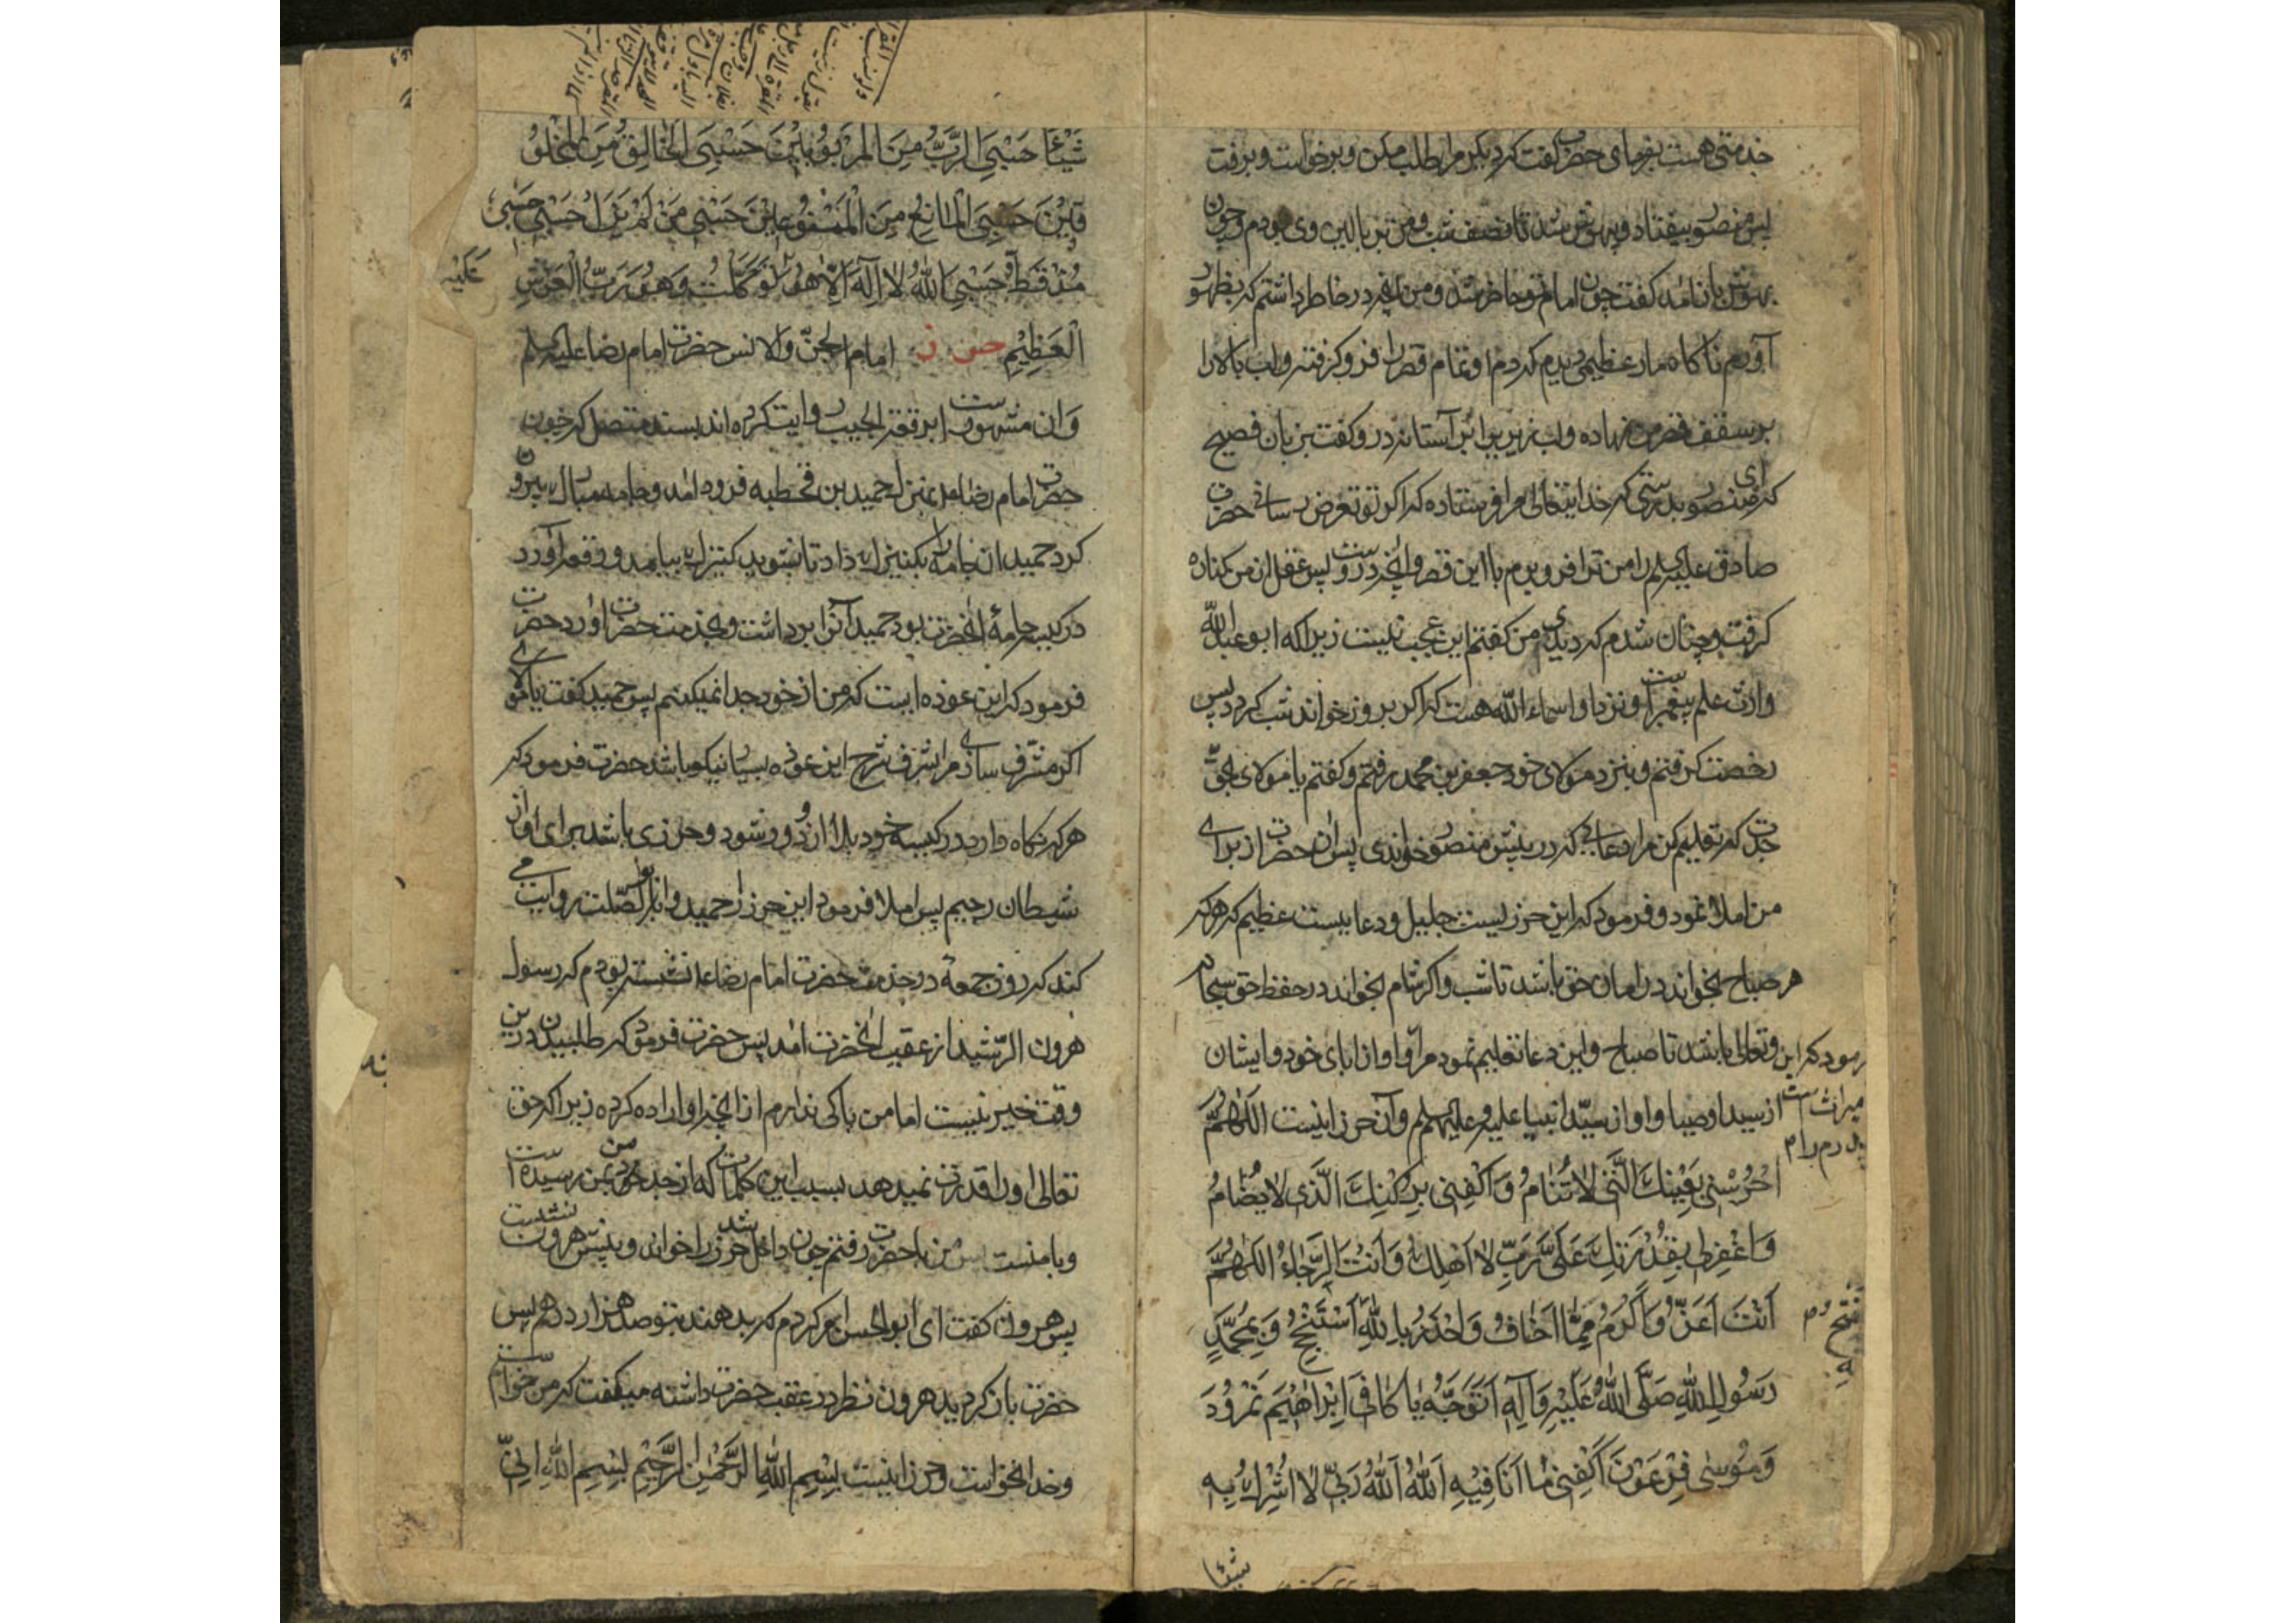 خدمتی هست بفرمای حضرت گفت که دیگر مرا طلب مکن و برخواست و برفت
پس منصور بیفتاد و بیهوش شد تا نصف شب و من بر بالین وی بودم و چون
بهوش باز آمد گفت چون امام تو حاضر شد و من آنچه در خاطر داشتم که بظهور
آورم ناگاه مار عظیمی دیدم که دم او تمام قصر را فرو گرفته و لب بالا را
بر سقف قصر من نهاده و لب زیرین را بر آستانه در و گفت بزبان فصیح
که ای منصور بدرستی که خدایتعالی مرا فرستاده که اگر تو تعرض رسانی حضرت
صادق علیه السلم را من ترا فرو برم با این قصر و آنچه دروست پس عقل از من کناره
گرفت و چنان شدم که دیدی من گفتم این عجب نیست زیرا که ابو عبد الله
وارث علم پیغمبرست و نزد او اسماء الله هست که اگر بروز خواند شب گردد پس
رخصت گرفتم و بنزد مولای خود جعفر بن محمد رفتم و گفتم یا مولای بحق
جدت که تعلیم کن مرا دعایی که در پیش منصور خواندی پس آن حضرت از برای
من املا نمود و فرمود که این حرزیست جلیل و دعاییست عظیم که هر که
هر صباح بخواند در امان حق باشد تا شب و اگر شام بخواند در حفظ حق سبحانه
وتعالی باشد تا صباح و این دعا تعلیم نمود مرا و او از ابای خود و ایشان
از سید اوصیا و او از سید انبیا علیه و علیهم السلم و آن حرز اینست اللهم
احْرُسْنِی بِعَیْنِكَ الَّتِی لَا تَنَامُ وَاكْفِنِی بِرُكْنِكَ الَّذِی لَا یُضَامُ
وَاغْفِرْ لِی بِقُدْرَتِكَ عَلَیَّ رَبِّ لَا اَهْلِكُ وَاَنْتَ الرَّجَاءُ اللّٰهُمَّ
اَنْتَ اَعَزُّ وَاَكْرَمُ مِمَّا اَخَافُ وَاَحْذَرُ بِاللّٰهِ اَسْتَنْجِحُ وَبِمُحَمَّدٍ
رَسُولِ اللّٰهِ صَلَّی اللّٰهُ عَلَیْهِ وَآلِهِ اَتَوَجَّهُ یَا كَافِیَ اِبْرَاهِیمَ نَمْرُودَ
وَمُوسٰی فِرْعَوْنَ اكْفِنِی مَا اَنَا فِیْهِ اَللّٰهُ اَللّٰهُ رَبِّی لَا اُشْرِكُ بِهِ
شیئا
شَیْئًا حَسْبِیَ الرَّبُّ مِنَ الْمَرْبُوبِیْنَ حَسْبِیَ الْخَالِقُ مِنَ الْمَخْلُو
قِیْنَ حَسْبِیَ الْمَانِعُ مِنَ الْمَمْنُوعِیْنَ حَسْبِی مَنْ لَمْ یَزَلْ حَسْبِی حَسْبِی
مُنْذُ قَطُّ حَسْبِیَ اللّٰهُ لَا اِلٰهَ اِلَّا هُوَ عَلَیْهِ تَوَكَّلْتُ وَهُوَ رَبُّ الْعَرْشِ
الْعَظِیْمِ حرز امام الجن والانس حضرت امام رضا علیه السلم
وآن مشهورست برقعة الجیب روایت کرده اند بسند متصل که چون
حضرت امام رضا بمنزل حمید بن قحطبه فرود آمد و جامه مبارك بیرون
کرد حمید آن جامه را بکنیزك داد تا بشوید کنیزك بیامد و رقعه آورد
در کیسه جامۀ آنحضرت بود حمید آنرا برداشت و بخدمت حضرت اورد حضرت
فرمود که این عوذه ایست که من از خود جدا نمیکنم پس حمید گفت یا مولای
اگر مشرف سازی مرا بشرف شرح این عوذه بسیار نیکو باشد حضرت فرمود که
هر که نگاه دارد در کیسه خود بلا از او دور شود و حرزی باشد برای او از
شیطان رجیم پس املا فرمود این حرز را حمید و ابو الصلت روایت می
کند که روز جمعه در خدمت حضرت امام رضا نشسته بودم که رسول
هرون الرشید از عقب آنحضرت آمد پس حضرت فرمود که طلبیدن درین
وقت خیر نیست اما من باکی ندارم از آنچه او اراده کرده زیرا که حق
تعالی او را قدرت نمیدهد بسبب این کلمات که از جد خود بمن رسیده است
و با منست پس من با حضرت رفتم چون داخل شد حرز را خواند و پیش هرون نشست
پس هرون گفت ای ابو الحسن امر کردم که بدهند بتو صد هزار درهم پس
حضرت باز گردید هرون نظر در عقب حضرت داشته میگفت که من خواستم
وخدا نخواست و حرز اینست بِسْمِ اللّٰهِ الرَّحْمٰنِ الرَّحِیْمِ بِسْمِ اللّٰهِ اِنِّی